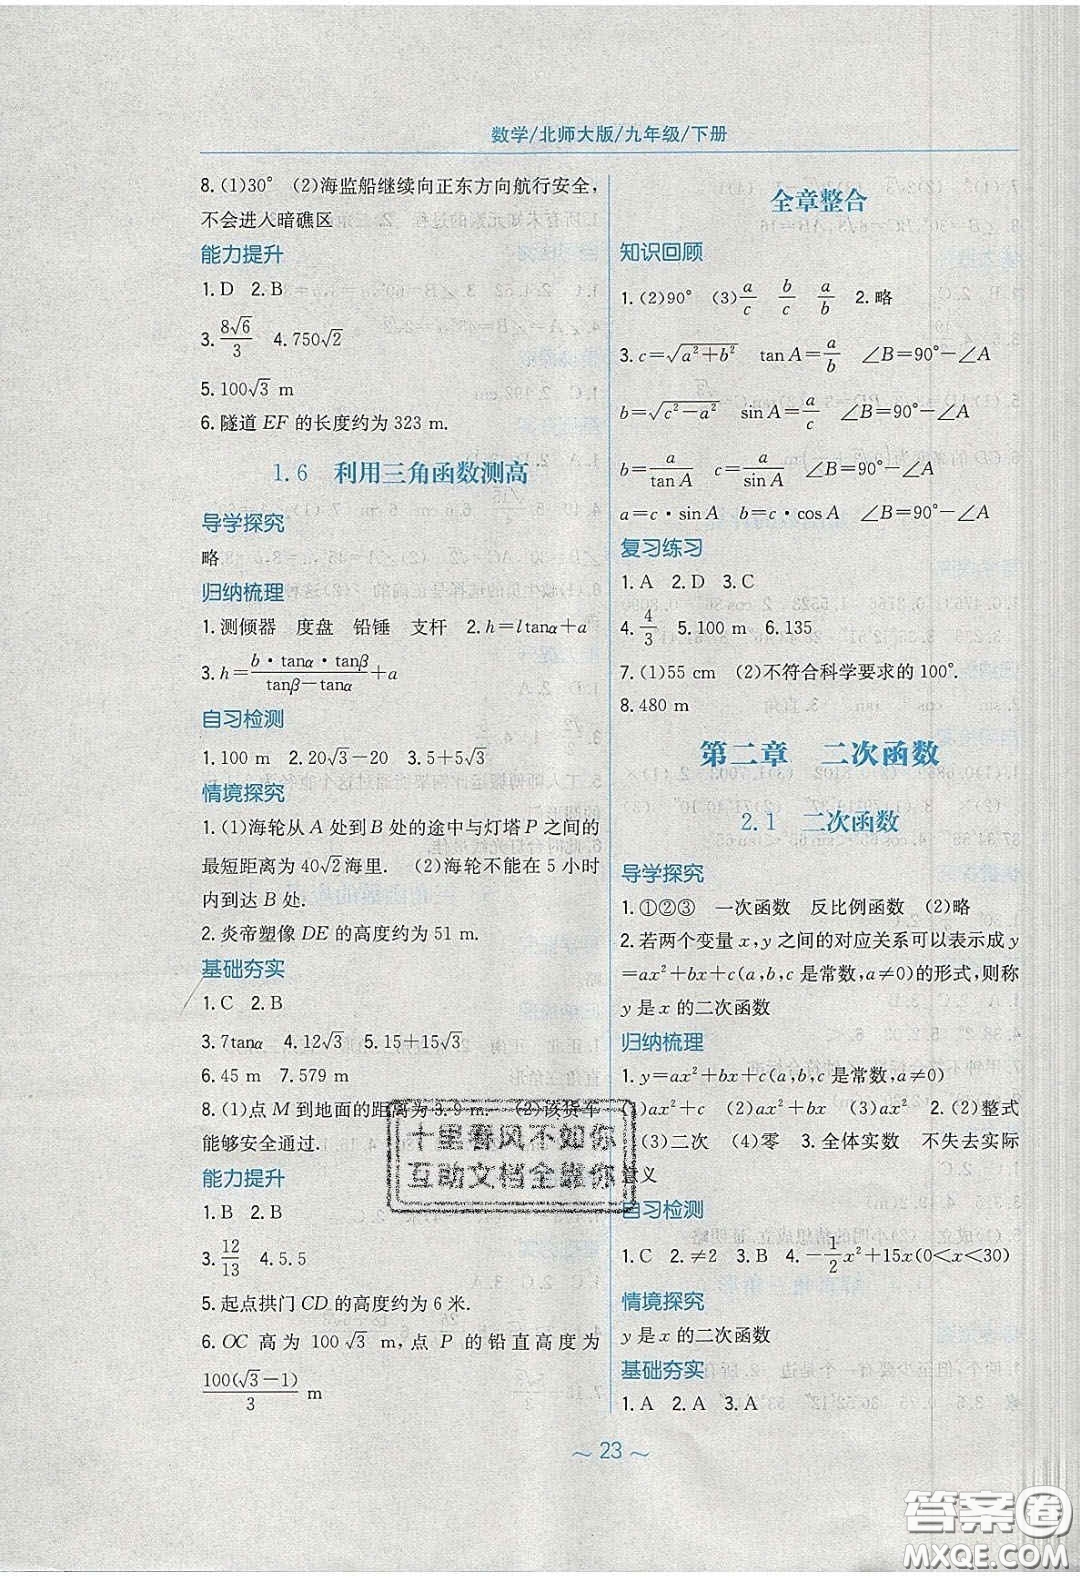 数学/北师大版/九年级/下册
8.(1)30° (2)海监船继续向正东方向航行安全，
不会进入暗礁区
能力提升
1.D 2.B
3.8√6/3 4.750√2
5.100√3 m
6.隧道 EF 的长度约为 323 m.
1.6 利用三角函数测高
导学探究
略
归纳梳理
1.测倾器 度盘 铅锤 支杆 2.h=ltanα+a
3.h=b·tanα·tanβ/(tanβ-tanα)+a
自习检测
1.100 m 2.20√3-20 3.5+5√3
情境探究
1.(1)海轮从 A 处到 B 处的途中与灯塔 P 之间的
最短距离为 40√2 海里. (2)海轮不能在 5 小时
内到达 B 处.
2.炎帝塑像 DE 的高度约为 51 m.
基础夯实
1.C 2.B
3.7tanα 4.12√3 5.15+15√3
6.45 m 7.579 m
8.(1)点 M 到地面的距离为 3.9 m. (2)该货车
能够安全通过.
能力提升
1.B 2.B
3.12/13 4.5.5
5.起点拱门 CD 的高度约为 6 米.
6.OC 高为 100√3 m，点 P 的铅直高度为
100(√3-1)/3 m
全章整合
知识回顾
1.(2)90° (3)a/c b/c a/b 2.略
3.c=√(a²+b²) tan A=a/b ∠B=90°-∠A
b=√(c²-a²) sin A=a/c ∠B=90°-∠A
b=a/tan A c=a/sin A ∠B=90°-∠A
a=c·sin A b=c·cos A ∠B=90°-∠A
复习练习
1.A 2.D 3.C
4.4/3 5.100 m 6.135
7.(1)55 cm (2)不符合科学要求的 100°.
8.480 m
第二章 二次函数
2.1 二次函数
导学探究
1.①②③ 一次函数 反比例函数 (2)略
2.若两个变量 x,y 之间的对应关系可以表示成 y
=ax²+bx+c(a,b,c 是常数,a≠0)的形式,则称
y 是 x 的二次函数
归纳梳理
1.y=ax²+bx+c(a,b,c 是常数,a≠0)
(1)ax²+c (2)ax²+bx (3)ax² 2.(2)整式
(3)二次 (4)零 3.全体实数 不失去实际
意义
自习检测
1.C 2.≠2 3.B 4.-1/2x²+15x(0<x<30)
情境探究
y 是 x 的二次函数
基础夯实
1.A 2.A 3.A
十里春风不如你
互动文档全靠你
～ 23 ～
答案圈
MXQE.COM